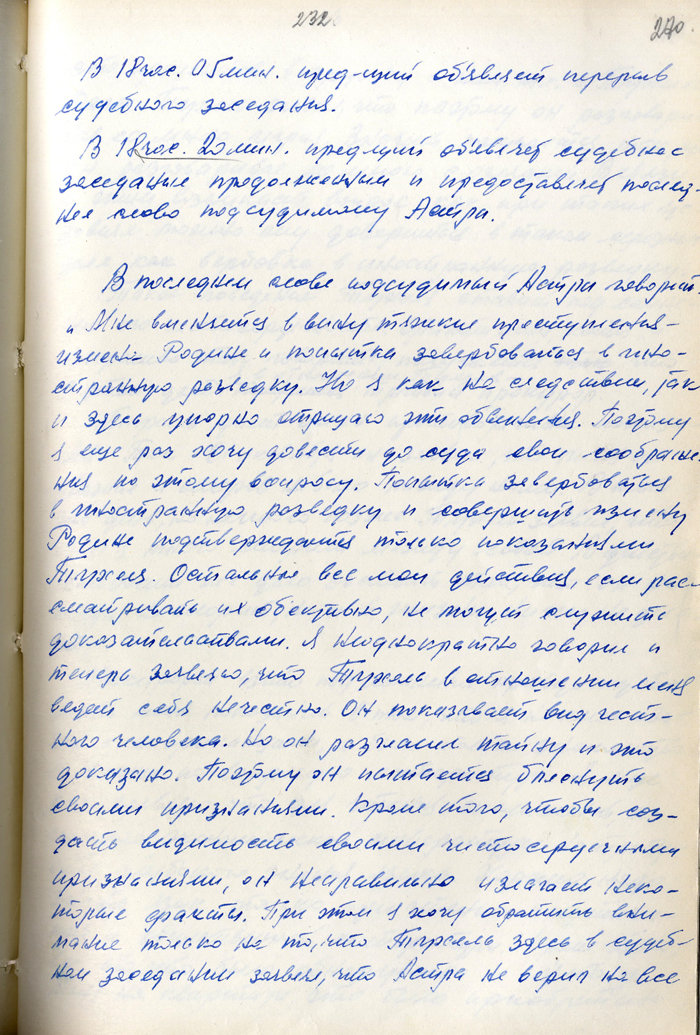 232.
270.
В 18 час. 05 мин. пред-щий объявляет перерыв
судебного заседания.
В 18 час. 20 мин. пред-щий объявляет судебное
заседание продолженным и предоставляет послед-
нее слово подсудимому Астра.
В последнем слове подсудимый Астра говорит
„Мне вменяется в вину тяжкие преступления -
измена Родине и попытка завербоваться в ино-
странную разведку. Но я как на следствии, так
и здесь упорно отрицаю эти обвинения. Поэтому
я еще раз хочу довести до суда свои соображе-
ния по этому вопросу. Попытка завербоваться
в иностранную разведку и совершить измену
Родине подтверждается только показаниями
Остальные все мои действия, если рас-
сматривать их обективно, не могут служить
доказательствами. Я неоднократно говорил и
теперь заявляю, что в отношении меня
ведет себя нечестно. Он показывает вид чест-
ного человека. Но он разгласил тайну и это
доказано. Поэтому он пытается блеснуть
своими признаниями. Кроме того, чтобы соз-
дать видимость своими чистосердечными
признаниями, он неправильно излагает неко-
торые факты. При этом я хочу обратить вни-
мание только на то, что здесь в судеб-
ном заседании заявил, что Астра не верил на все